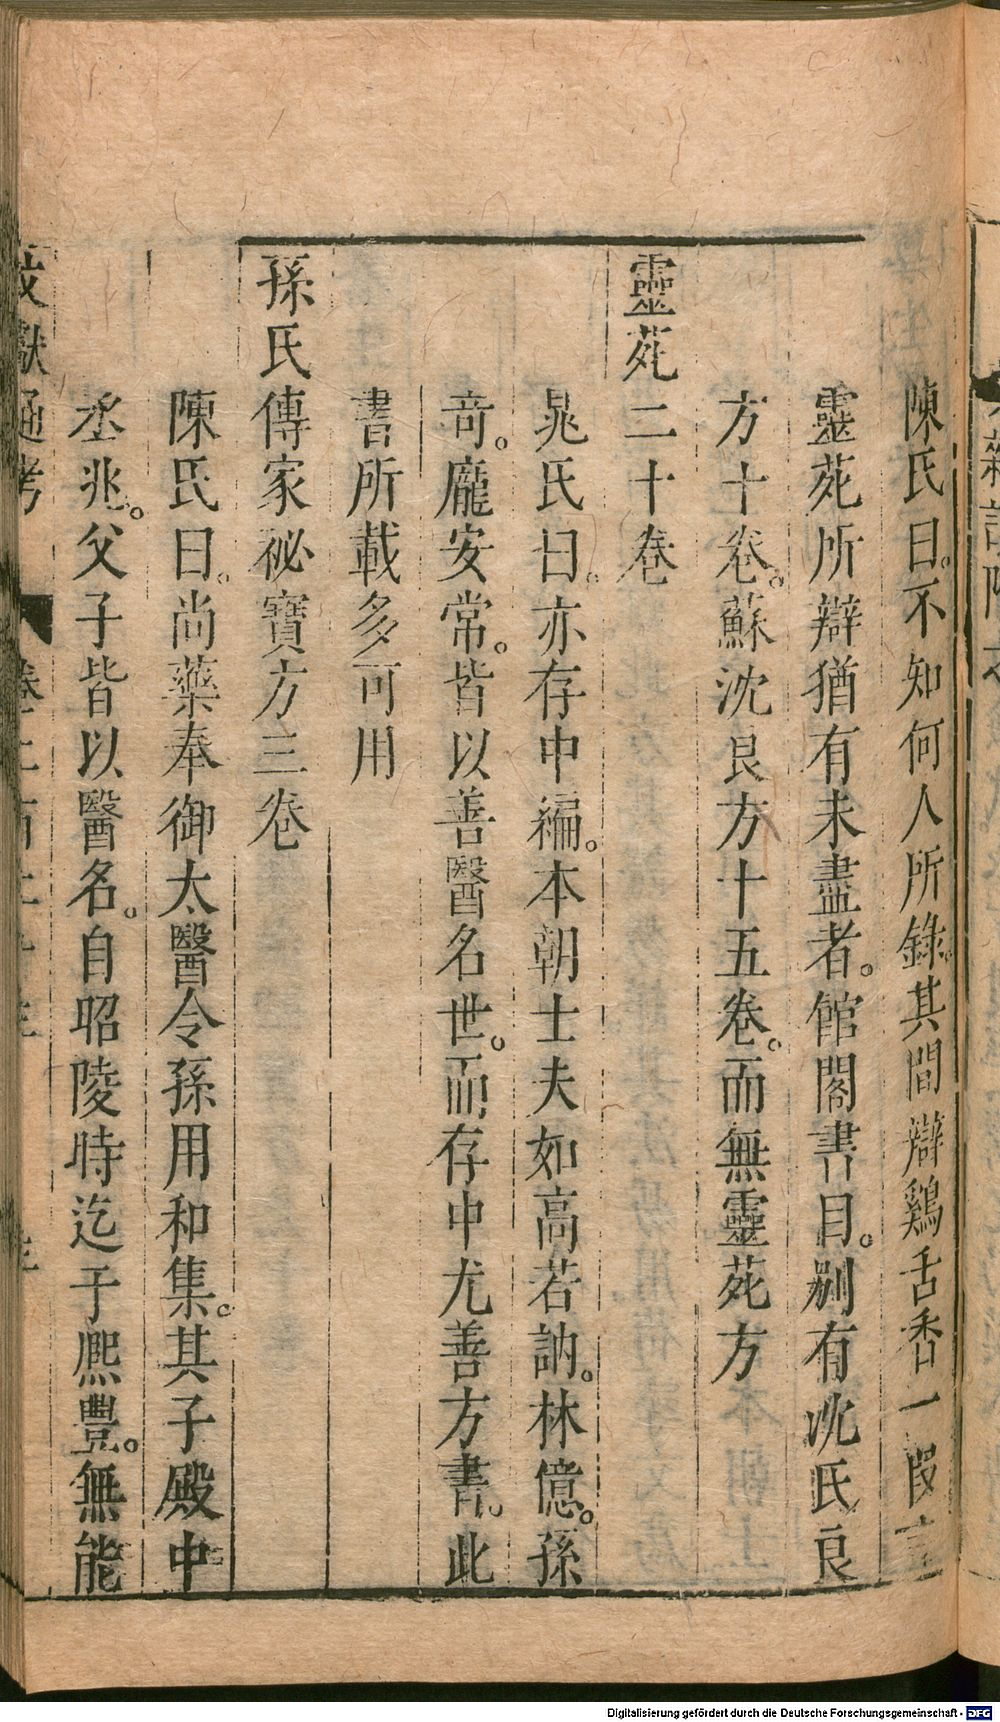 陳氏曰。不知何人所錄。其間辯鷄舌香一段言
靈苑所辯猶有未盡者。館閣書目。別有沈氏良
方十卷。蘇沈良方十五卷。而無靈苑方
靈苑二十卷
晁氏曰。亦存中編。本朝士夫如高若訥。林億。孫
奇。龐安常。皆以善醫名世。而存中尤善方書。此
書所載多可用
孫氏傳家祕寶方三卷
陳氏曰。尚藥奉御太醫令孫用和集。其子殿中
丞兆。父子皆以醫名。自昭陵時迄于熈豐。無能
文獻通考
Digitalisierung gefördert durch die Deutsche Forschungsgemeinschaft - DFG